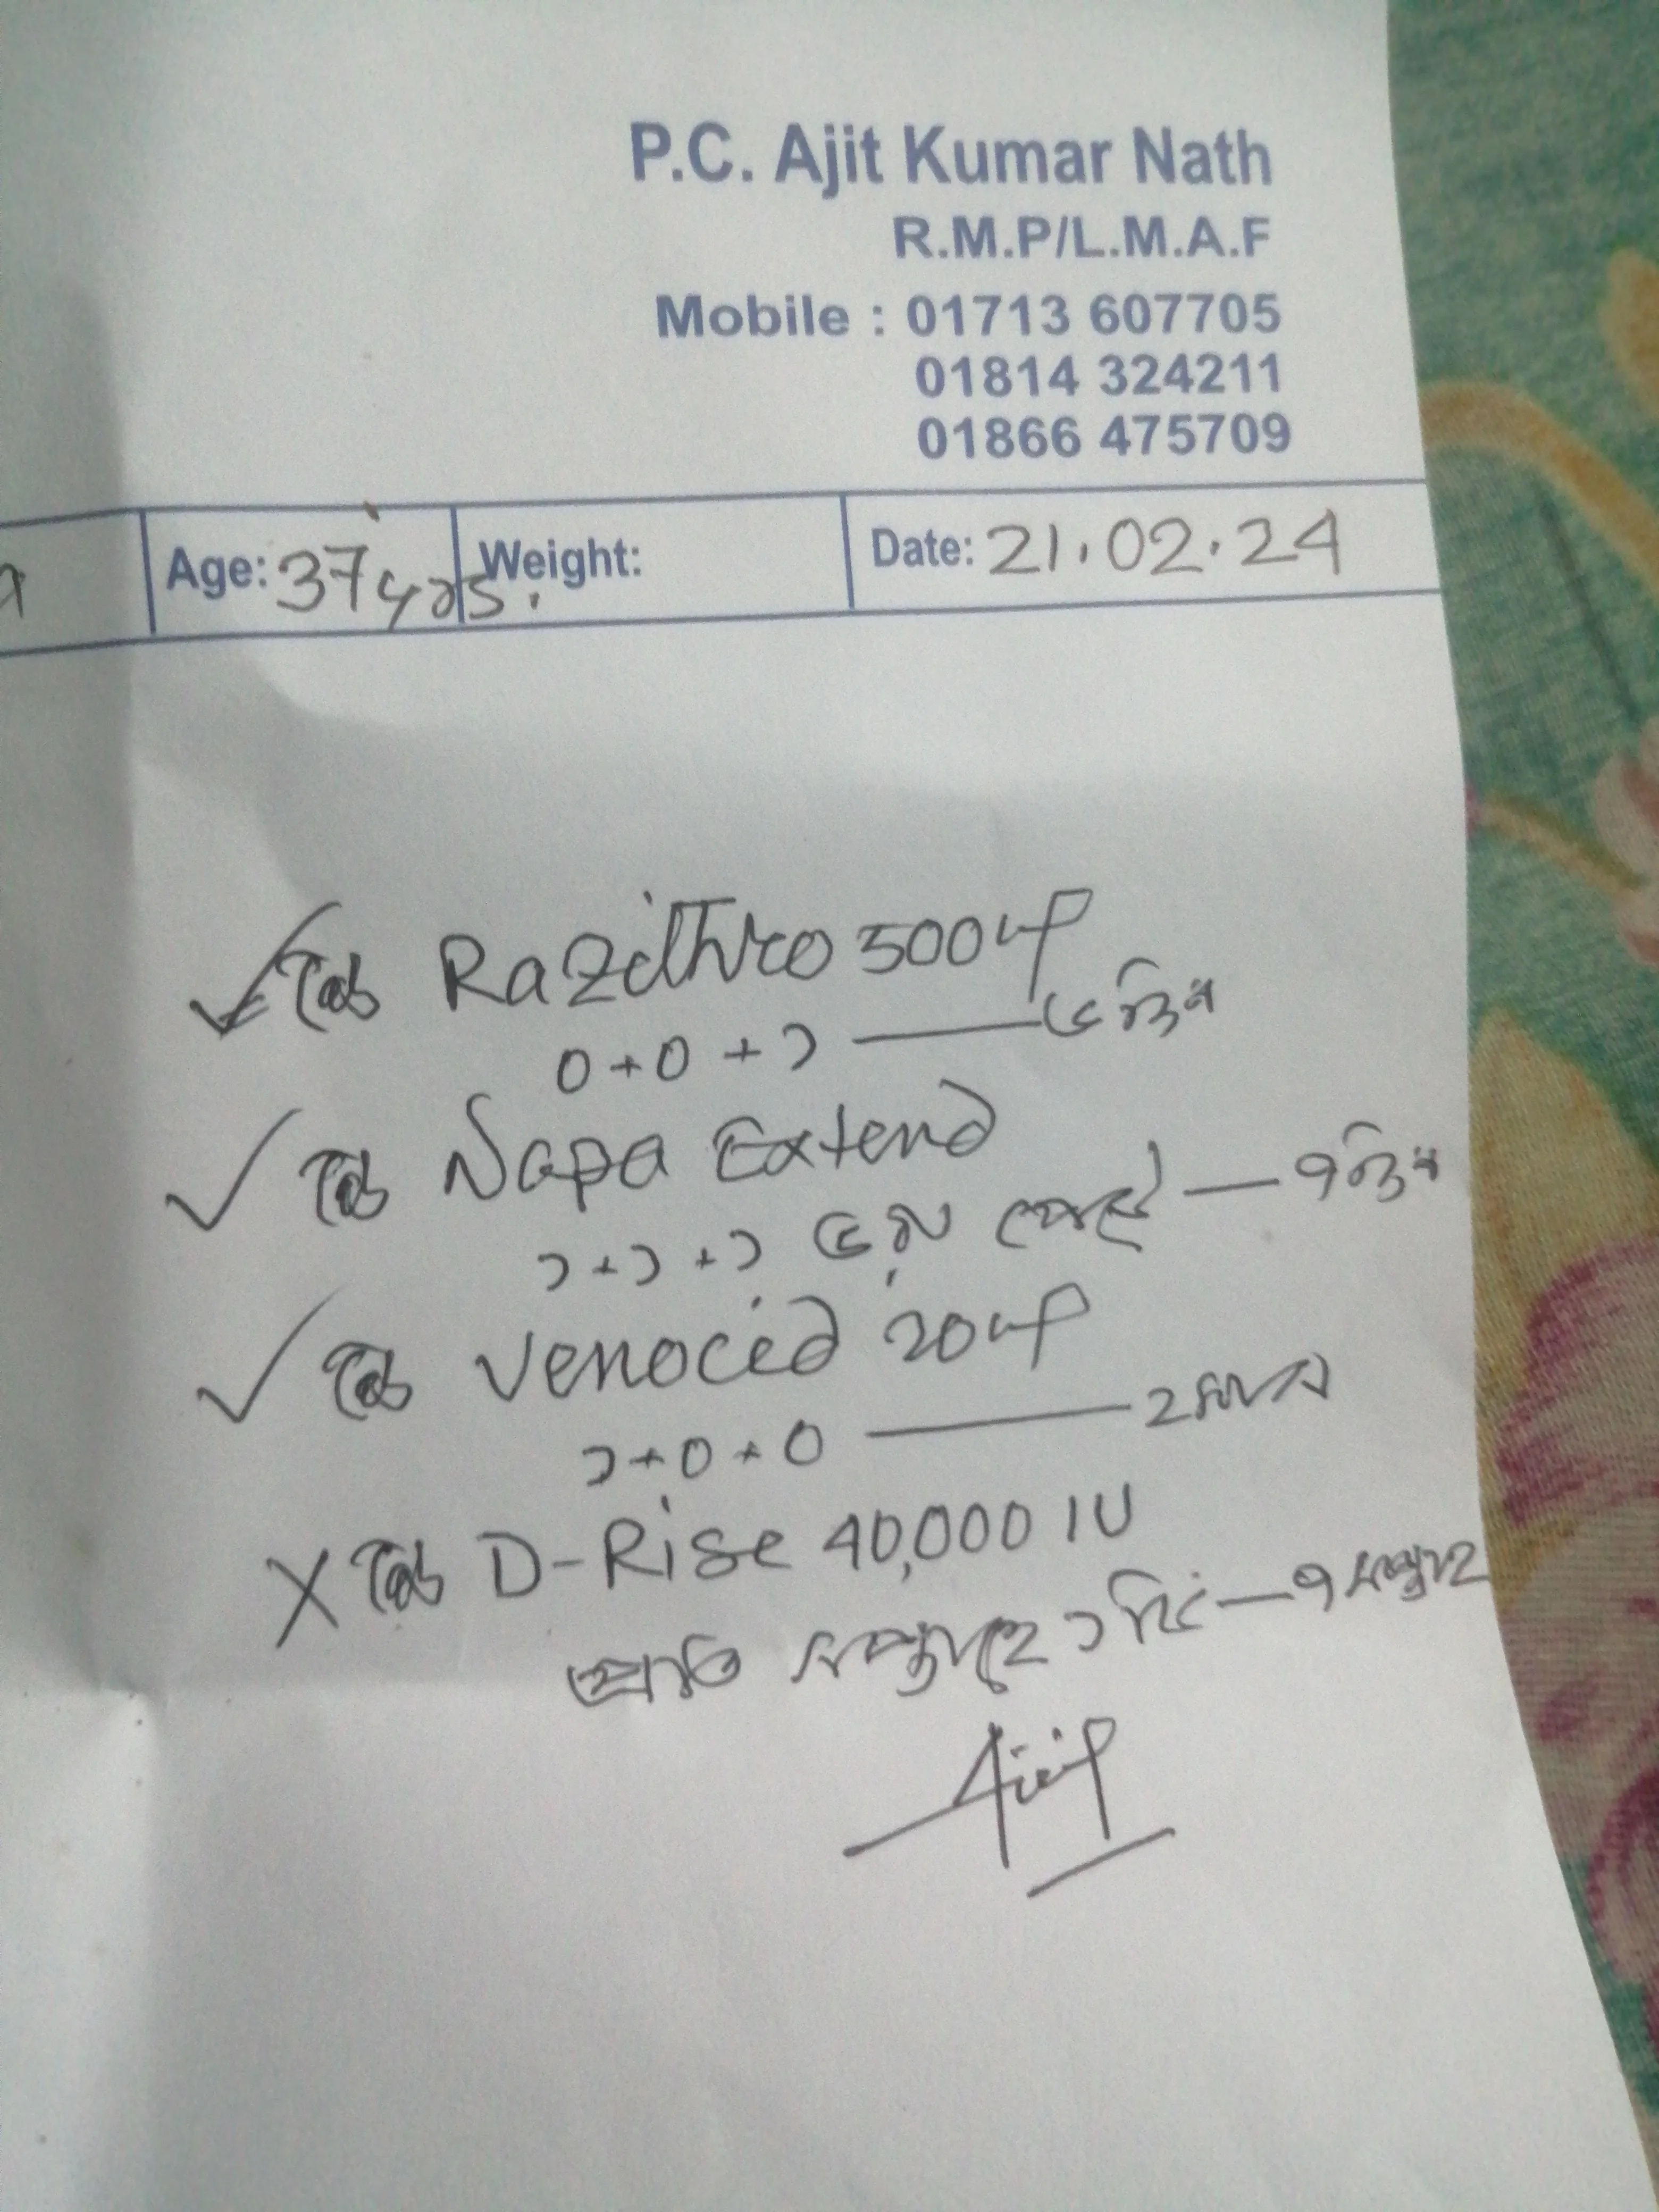 P.C. Ajit Kumar Nath
R.M.P/L.M.A.F
Mobile : 01713 607705
01814 324211
01866 475709
Age: 37 yrs. Weight: Date: 21.02.24
✓ টেব Razithro 500 mg
0+0+১ — ৫ দিন
✓ টেব Napa Extend
১+১+১ — ৭ দিন
✓ টেব Venocid 20 mg
১+০+০ — ২ মাস
X টেব D-Rise 40,000 IU
প্রতি সপ্তাহে ১ টি — ৭ সপ্তাহ
Ajit